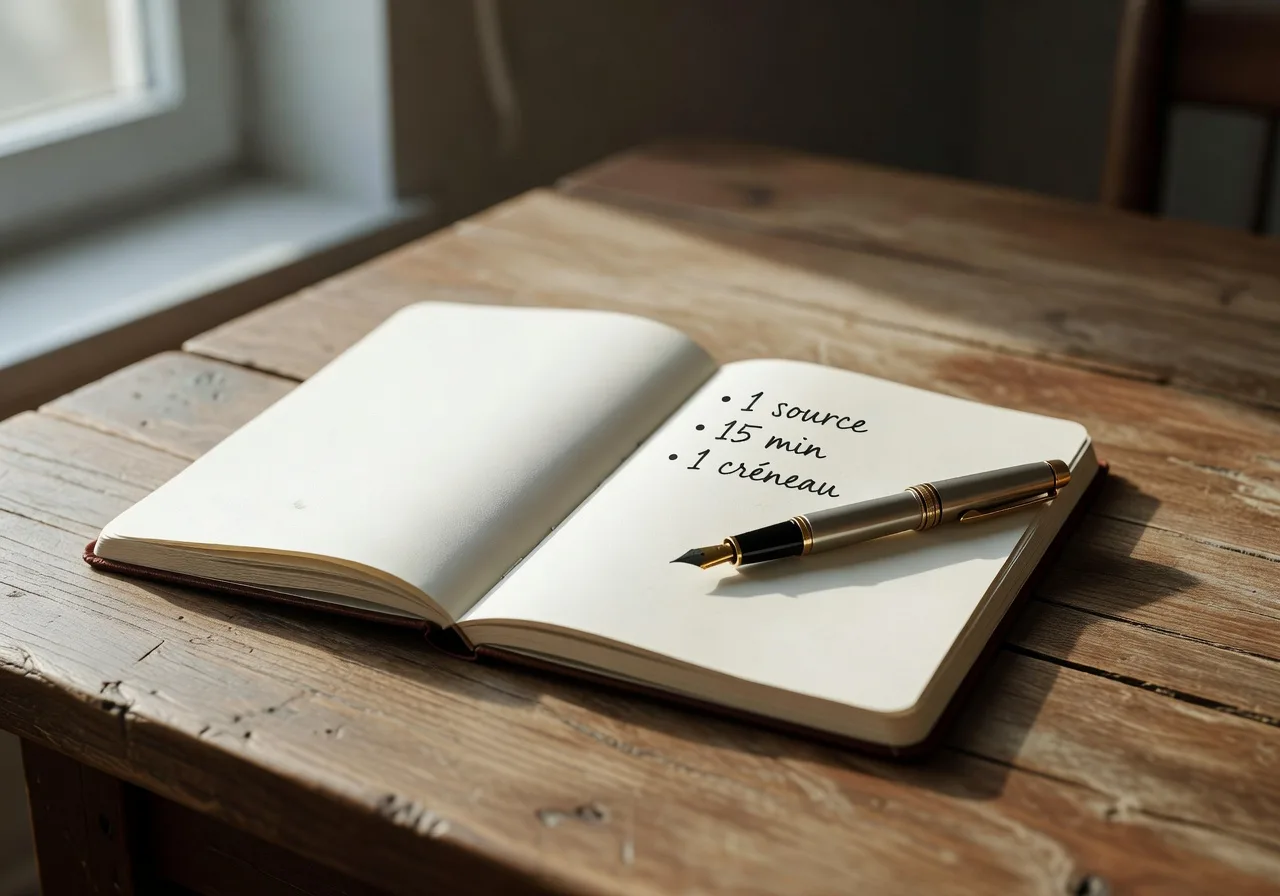 • 1 source
• 15 min
• 1 créneau